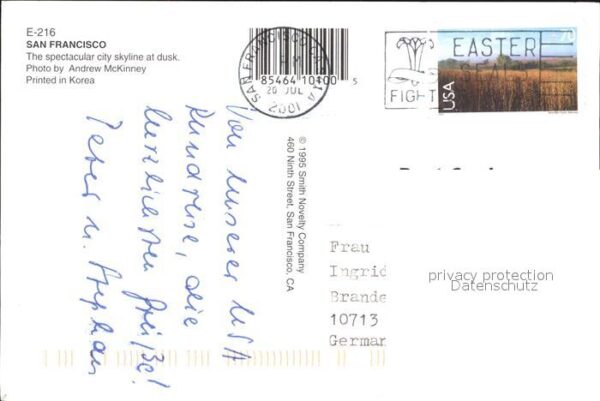 E-216
SAN FRANCISCO
The spectacular city skyline at dusk.
Photo by Andrew McKinney
Printed in Korea
85464 10100 5
SAN FRANCISCO CA
PM
20 JUL
2001
EASTER
SEALS
FIGHT
70
USA
© 1995 Smith Novelty Company
460 Ninth Street, San Francisco, CA
Von unserer USA
Rundreise, die
herzlichsten Grüße!
Peter u. Stephan
Frau
Ingrid
Brande
10713
German
privacy protection
Datenschutz